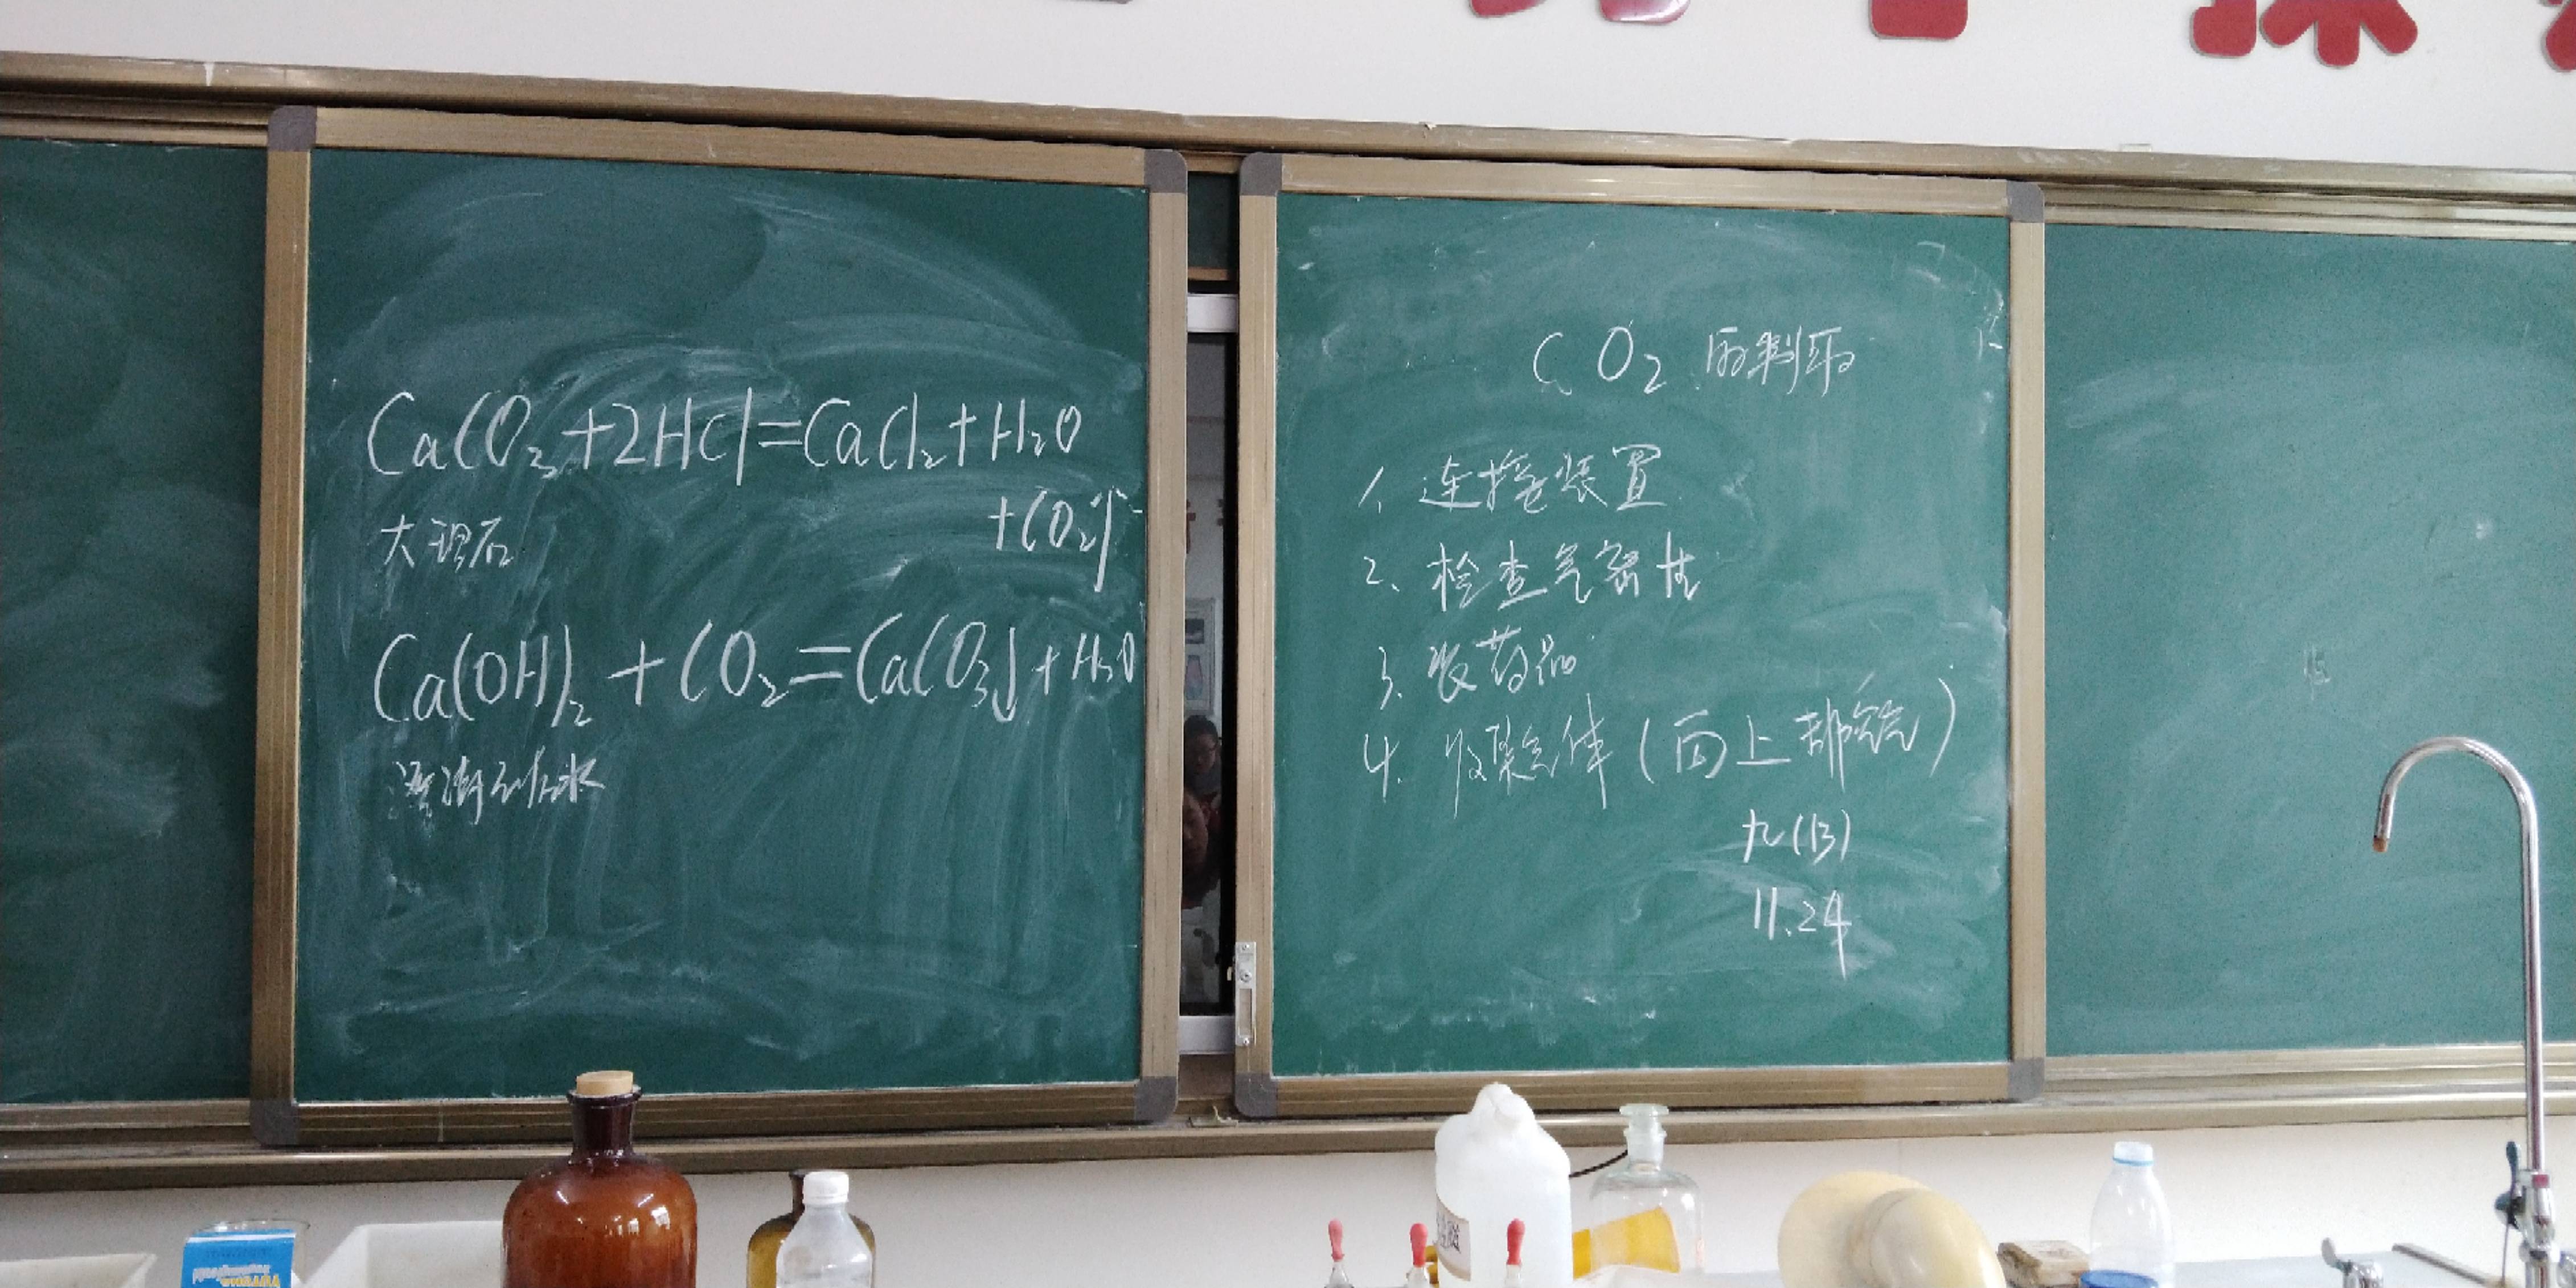 CaCO₃+2HCl=CaCl₂+H₂O
+CO₂↑
大理石
Ca(OH)₂+CO₂=CaCO₃↓+H₂O
澄清石灰水
CO₂的制取
1、连接装置
2、检查气密性
3、装药品
4、收集气体(向上排空气)
九(13)
11.24